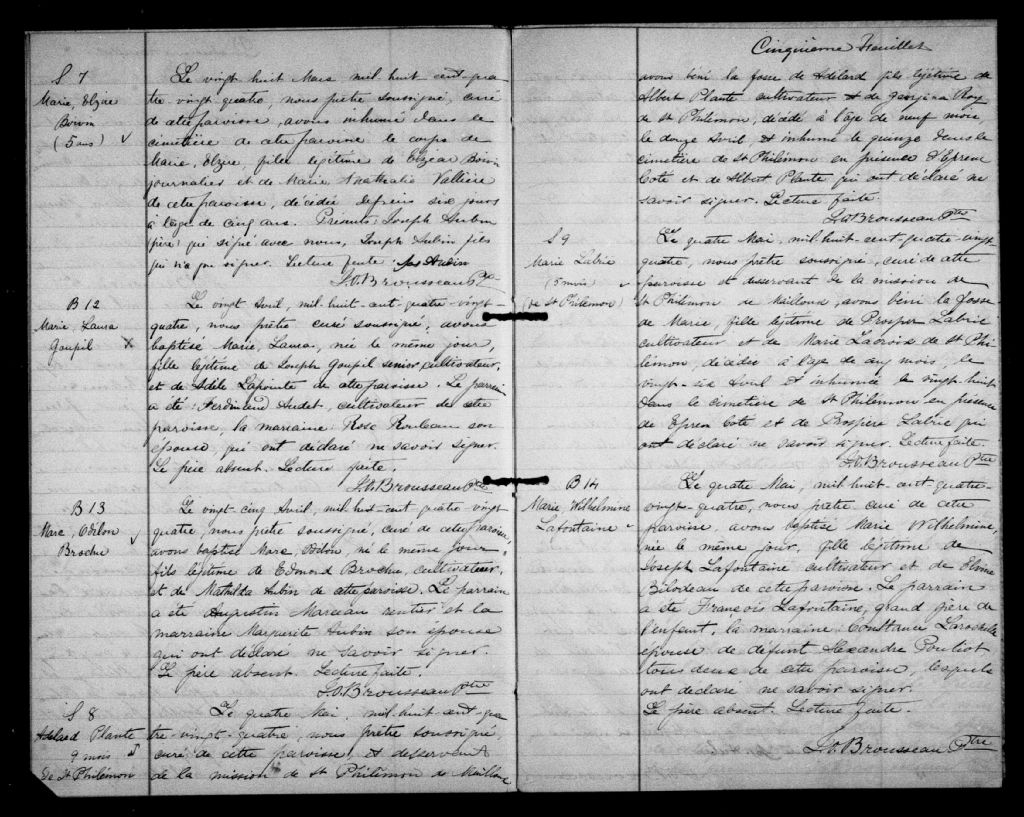 S 7
Marie, Elzire
Boivin
(5 ans)
Le vingt huit Mars mil huit cent qua-
tre-vingt quatre, nous prêtre soussigné, curé
de cette paroisse, avons inhumé dans le
cimetière de cette paroisse le corps de
Marie, Elzire, fille legitime de Elzéar Boivin
journalier et de Marie Nathalie Vallière
de cette paroisse, décédée depuis six jours
à l'age de cinq ans. Présents: Joseph Aubin
(père) qui signé avec nous, Joseph Aubin fils
qui n'a pu signer. Lecture faite. Jos Aubin
J.O. Brousseau Ptre
B 12
Marie, Laura
Goupil
Le vingt Avril, mil-huit-cent-quatre-vingt-
quatre, nous prêtre curé soussigné, avons
baptisé Marie, Laura, née le même jour,
fille légitime de Joseph Goupil senior cultivateur,
et de Adèle Lapointe de cette paroisse. Le parrain
a été Ferdinand Audet, cultivateur de cette
paroisse, la marraine Rose Rouleau son
épouse qui ont déclaré ne savoir signer.
Le père absent. Lecture faite.
J.O. Brousseau Ptre
B 13
Marc, Odilon
Brochu
Le vingt-cinq Avril, mil-huit-cent quatre-vingt
quatre, nous prêtre soussigné, curé de cette paroisse,
avons baptisé Marc, Odilon, né le même jour,
fils légitime de Edmond Brochu, cultivateur,
et de Mathilda Aubin de cette paroisse. Le parrain
a été Augustin Marceau rentier et la
marraine Marguerite Aubin son épouse
qui ont déclaré ne savoir signer.
Le père absent. Lecture faite.
J.O. Brousseau Ptre
S 8
Adelard Plante
9 mois
De St Philémon
Le quatre Mai, mil-huit-cent qua-
tre-vingt-quatre, nous prêtre soussigné,
curé de cette paroisse, & desservant
de la mission de St Philémon de Mailloux
Cinquième Feuillet
avons béni la fosse de Adelard fils légitime de
Albert Plante cultivateur & de Georgina Roy
de St Philémon, décédé à l'âge de neuf mois,
le douze Avril, & inhumé le quinze dans le
cimetière de St Philémon en présence d'Eprem
Cote et de Albert Plante qui ont déclaré ne
savoir signer. Lecture faite.
J.O. Brousseau Ptre
S 9
Marie Labrie
(5 mois)
(de St Philémon)
Le quatre Mai, mil-huit-cent-quatre-vingt-
quatre, nous prêtre soussigné, curé de cette
paroisse et desservant de la mission de
St Philémon de Mailloux, avons béni la fosse
de Marie, fille légitime de Prosper Labrie
cultivateur et de Marie Lacroix de St Phi-
lémon, décédée à l'age de cinq mois, le
vingt-six Avril & inhumée le vingt-huit
dans le cimetière de St Philémon en présence
de Eprem Cote et de Prospère Labrie qui
ont déclaré ne savoir signer. Lecture faite.
J.O. Brousseau Ptre
B 14
Marie, Wilhelmine
Lafontaine
Le quatre Mai, mil-huit-cent quatre-
vingt-quatre, nous prêtre curé de cette
paroisse, avons baptisé Marie Wilhelmine,
née le même jour, fille légitime de
Joseph Lafontaine cultivateur et de
Bilodeau de cette paroisse. Le parrain
a été François Lafontaine, grand père de
l'enfant, la marraine Constance Larochelle
épouse de defunt Alexandre Pouliot
tous deux de cette paroisse, lesquels
ont déclaré ne savoir signer.
Le père absent. Lecture faite.
J.O. Brousseau Ptre